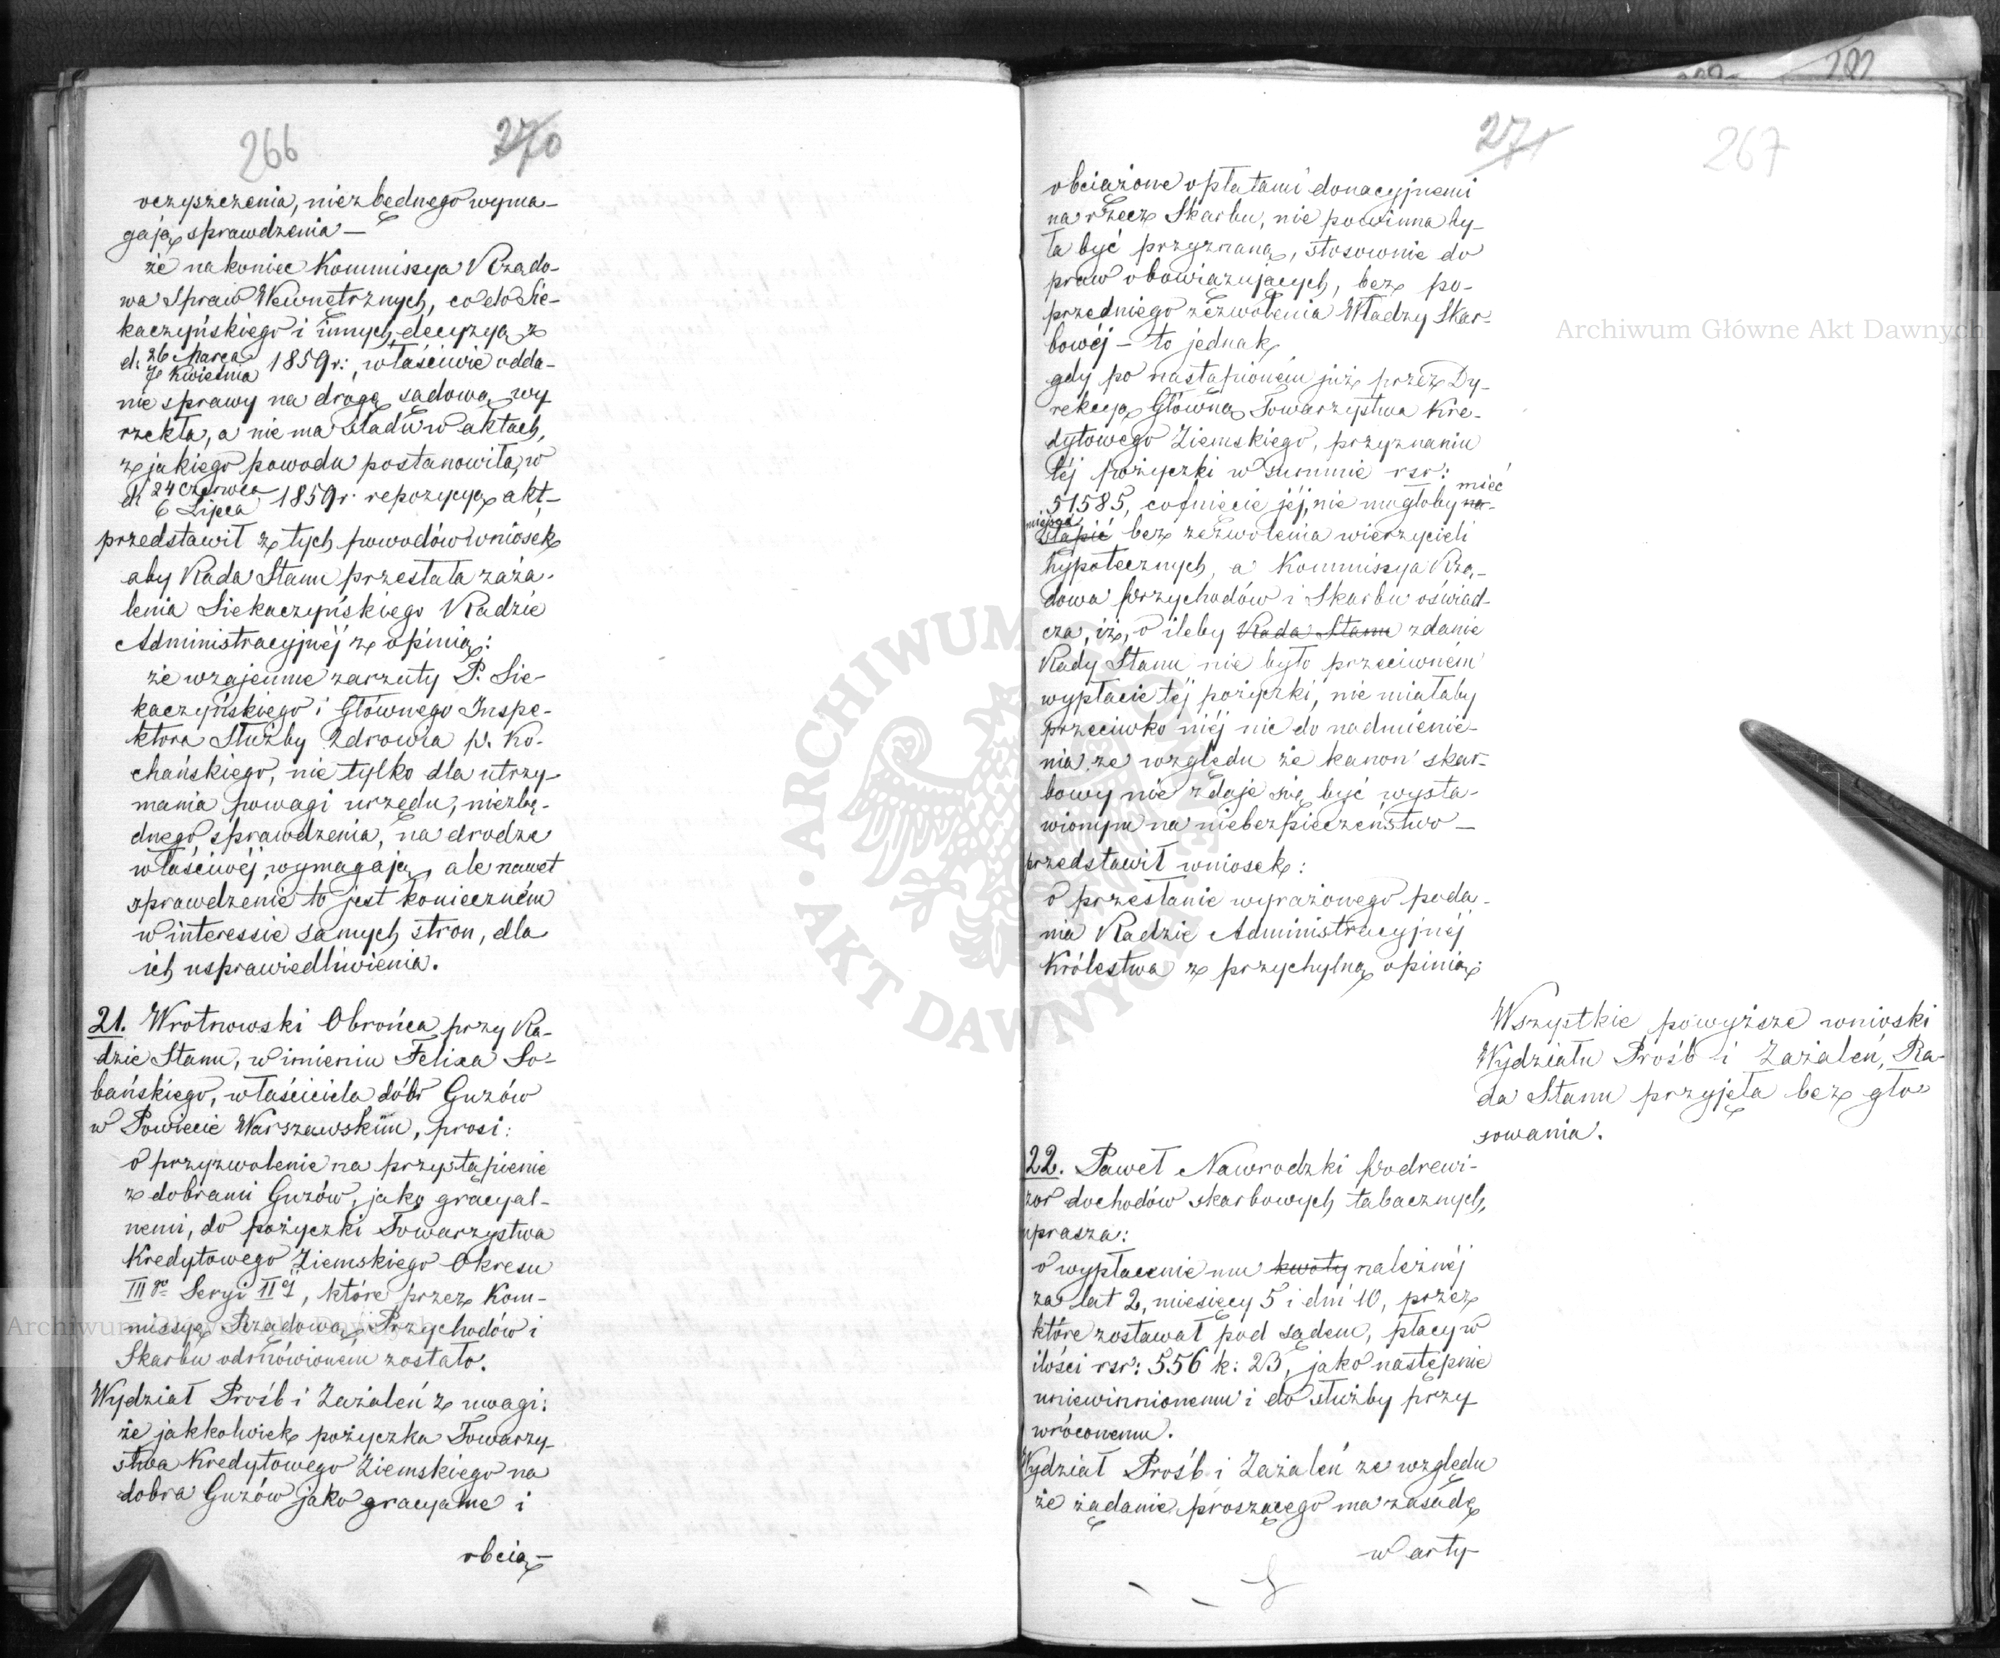 266
270
oczyszczenia, niezbędnego wyma-
gają sprawdzenia —
że nakoniec Kommissya Rządo-
wa Spraw Wewnętrznych, co do Sie-
kaczyńskiego i innych, decyzyą z
d. 26 Marca
7 Kwietnia 1859 r: właściwie odda-
nie sprawy na drogę sądową wy
rzekła, a nie ma śladu w aktach,
z jakiego powodu postanowiła, w
d. 24 Czerwca
6 Lipca 1859 r. repozycyą akt, —
przedstawił z tych powodów wniosek
aby Rada Stanu przesłała zaża-
lenia Siekaczyńskiego Radzie
Administracyjnéj z opinią:
że wzajemne zarzuty P. Sie-
kaczyńskiego i Głównego Inspe-
ktora Służby Zdrowia p. Ko-
chańskiego, nie tylko dla utrzy-
mania powagi urzędu, niezbę-
dnego sprawdzenia, na drodze
właściwéj wymagają, ale nawet
sprawdzenie to jest konieczném
w interessie samych stron, dla
ich usprawiedliwienia.
21. Wrotnowski Obrońca przy Ra-
dzie Stanu, w imieniu Felixa So-
bańskiego, właściciela dóbr Guzów
w Powiecie Warszawskim, prosi:
o przyzwolenie na przystąpienie
z dobrami Guzów, jako gracyal-
nemi, do pożyczki Towarzystwa
Kredytowego Ziemskiego Okresu
III go Seryi II éj, które przez Kom-
missyą Rządową Przychodów i
Skarbu odmówioném zostało.
Wydział Próśb i Zażaleń z uwagi:
że jakkolwiek pożyczka Towarzy-
stwa Kredytowego Ziemskiego na
dobra Guzów jako gracyalne i
obcią-
271
267
obciążone opłatami donacyjnemi
na rzecz Skarbu, nie powinna by-
ła być przyznaną, stosownie do
praw obowiązujących, bez po-
przedniego zezwolenia Władzy Skar-
bowéj — to jednak
gdy po nastąpioném już przez Dy-
rekcyą Główną Towarzystwa Kre-
dytowego Ziemskiego, przyznaniu
téj pożyczki w summie rsr:
mieć
51585, cofnięcie jéj, nie mogłoby na-
miejsca
stąpić bez zezwolenia wierzycieli
hypotecznych, a Kommissya Rzą-
dowa Przychodów i Skarbu oświad-
cza, iż, o ileby Rada Stanu zdanie
Rady Stanu nie było przeciwném
wypłacie téj pożyczki, nie miałaby
przeciwko niéj nic do nadmienie-
nia, ze względu że kanon skar-
bowy nie zdaje się być wysta-
wionym na niebezpieczeństwo —
przedstawił wniosek:
o przesłanie wyrażonego poda-
nia Radzie Administracyjnéj
Królestwa z przychylną opinią:
Wszystkie powyższe wnioski
Wydziału Próśb i Zażaleń, Ra-
da Stanu przyjęła bez gło-
sowania.
22. Paweł Nawrodzki Podrewi-
zor dochodów skarbowych tabacznych,
uprasza:
o wypłacenie mu kwoty należnéj
za lat 2, miesięcy 5 i dni 10, przez
które zostawał pod sądem, płacy w
ilości rsr: 556 k: 23, jako następnie
uniewinnionemu i do służby przy
wróconemu.
Wydział Próśb i Zażaleń ze względu
że żądanie proszącego ma zasadę
w arty-
Archiwum Główne Akt Dawnych
ARCHIWUM GŁÓWNE AKT DAWNYCH